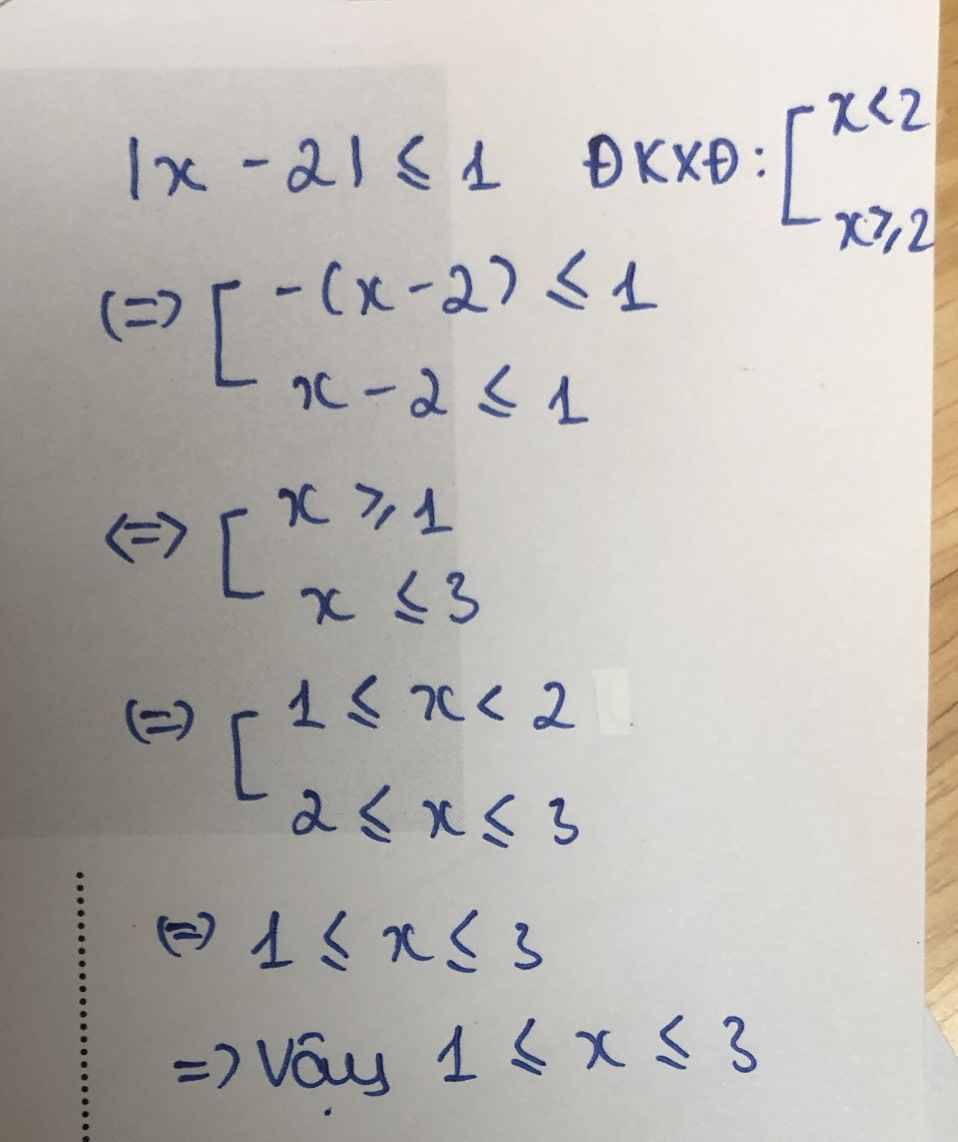 |x - 2| ⩽ 1 ĐKXĐ: [ x < 2
x ⩾ 2
(=) [ -(x - 2) ⩽ 1
x - 2 ⩽ 1
<=> [ x ⩾ 1
x ⩽ 3
(=) [ 1 ⩽ x < 2
2 ⩽ x ⩽ 3
(=) 1 ⩽ x ⩽ 3
=> Vậy 1 ⩽ x ⩽ 3